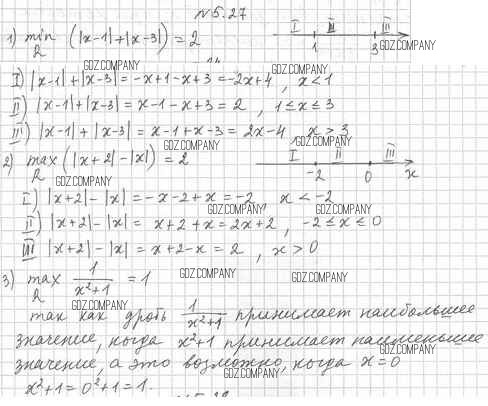 №5.27
1) min (|x-1|+|x-3|) = 2
R
I II III
1 3
GDZ.COMPANY
GDZ.COMPANY GDZ.COMPANY
I) |x-1|+|x-3| = -x+1-x+3 = -2x+4, x<1
II) |x-1|+|x-3| = x-1-x+3 = 2, 1≤x≤3
III) |x-1|+|x-3| = x-1+x-3 = 2x-4, x>3
GDZ.COMPANY GDZ.COMPANY
2) max (|x+2|-|x|) = 2
R
I II III
-2 0 x
GDZ.COMPANY
I) |x+2|-|x| = -x-2+x = -2, x<-2
GDZ.COMPANY GDZ.COMPANY
II) |x+2|-|x| = x+2+x = 2x+2, -2≤x≤0
III |x+2|-|x| = x+2-x = 2, x>0
3) max 1/(x²+1) = 1
R
GDZ.COMPANY GDZ.COMPANY
GDZ.COMPANY
так как дробь 1/(x²+1) принимает наибольшее
значение, когда x²+1 принимает наименьшее
GDZ.COMPANY
значение, а это возможно, когда x=0
GDZ.COMPANY
x²+1=0²+1=1.